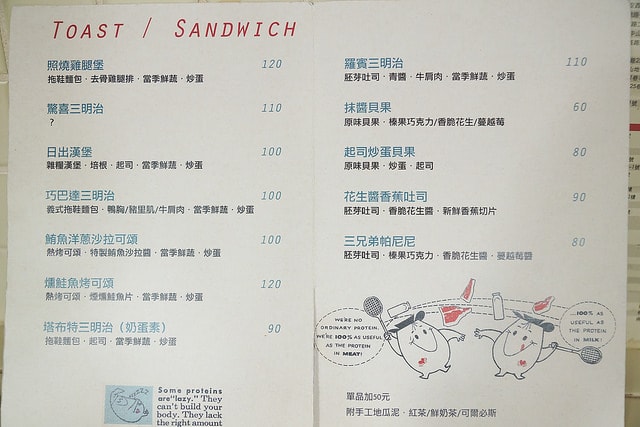 TOAST / SANDWICH
照燒雞腿堡 120
拖鞋麵包．去骨雞腿排．當季鮮蔬．炒蛋
驚喜三明治 110
?
日出漢堡 100
雜糧漢堡．培根．起司．當季鮮蔬．炒蛋
巧巴達三明治 100
義式拖鞋麵包．鴨胸/豬里肌/牛肩肉．當季鮮蔬．炒蛋
鮪魚洋蔥沙拉可頌 100
熱烤可頌．特製鮪魚沙拉醬．當季鮮蔬．炒蛋
燻鮭魚烤可頌 120
熱烤可頌．煙燻鮭魚片．當季鮮蔬．炒蛋
塔布特三明治（奶蛋素） 90
拖鞋麵包．起司．當季鮮蔬．炒蛋
Some proteins
are "lazy." They
can't build your
body. They lack
the right amount
羅賓三明治 110
胚芽吐司．青醬．牛肩肉．當季鮮蔬．炒蛋
抹醬貝果 60
原味貝果．榛果巧克力/香脆花生/蔓越莓
起司炒蛋貝果 80
原味貝果．炒蛋．起司
花生醬香蕉吐司 90
胚芽吐司．香脆花生醬．新鮮香蕉切片
三兄弟帕尼尼 80
胚芽吐司．榛果巧克力．香脆花生醬．蔓越莓醬
WE'RE NO
ORDINARY PROTEIN.
WE'RE 100% AS USEFUL
AS THE PROTEIN
IN MEAT!
...100% AS
USEFUL AS
THE PROTEIN
IN MILK!
單品加50元
附手工地瓜泥．紅茶/鮮奶茶/可爾必斯